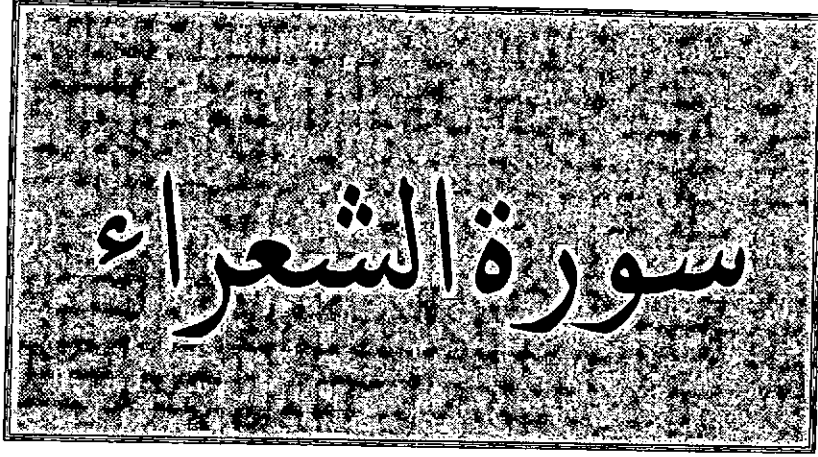 سورة الشعراء